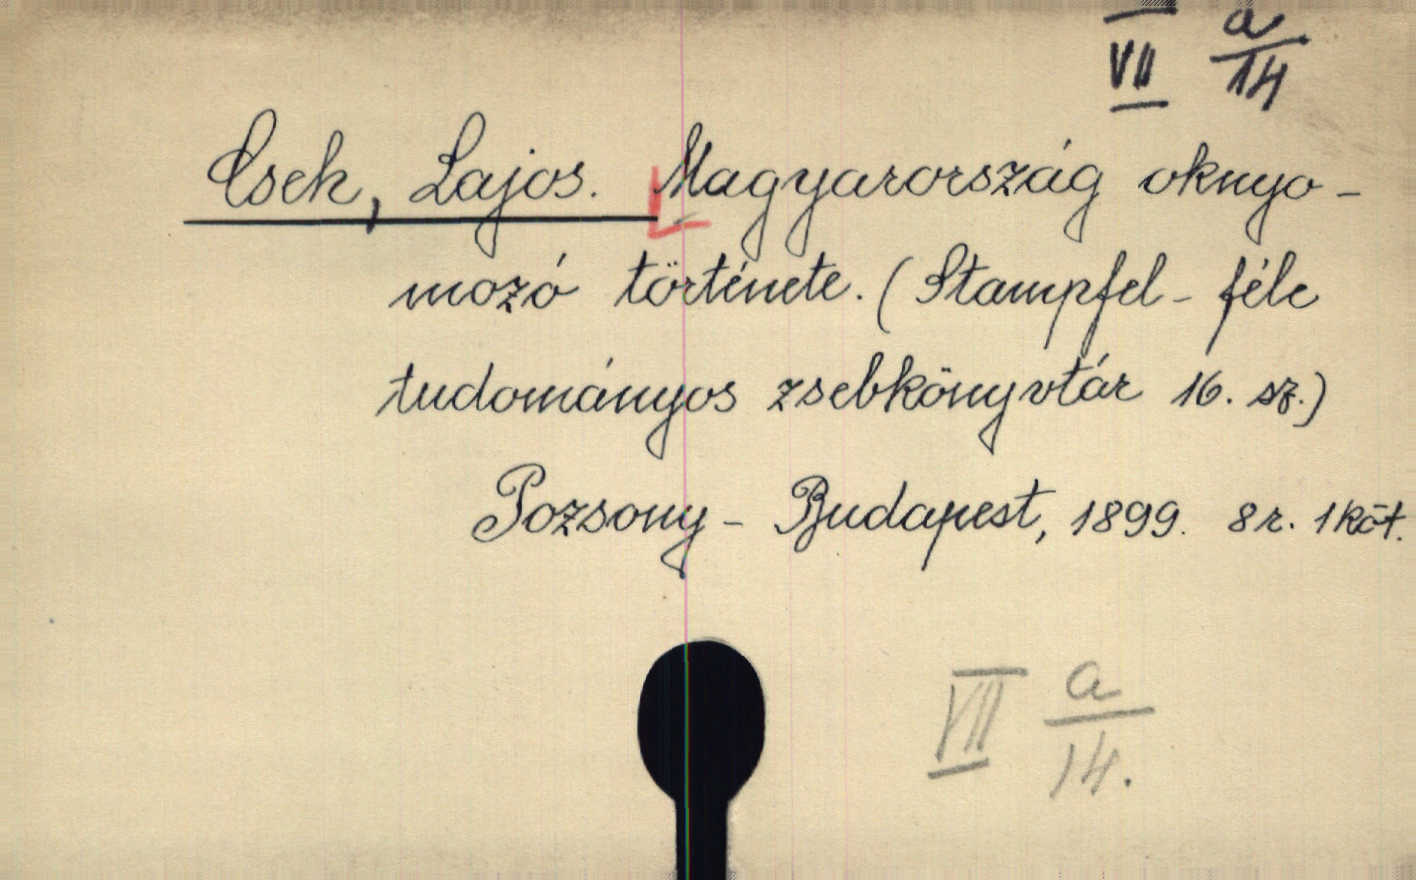 VII a/14
Cseh, Lajos. Magyarország oknyo-
mozó története. (Stampfel-féle
tudományos zsebkönyvtár 16. sz.)
Pozsony - Budapest, 1899. 8r. 1 köt.
VII a/14.